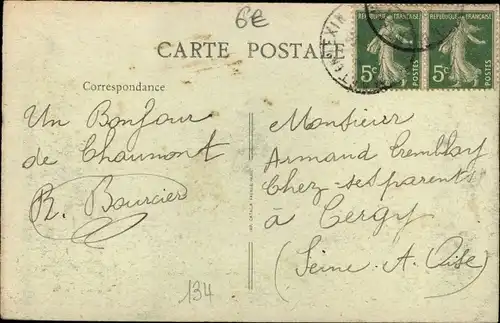 6€
CARTE POSTALE
REPUBLIQUE FRANÇAISE
5c
POSTES
REPUBLIQUE FRANÇAISE
5c
POSTES
EN VEXIN
Correspondance
Un Bonjour
de Chaumont
R. Bourcier
134
Monsieur
Armand Tremblay
Chez ses parents
à Cergy
(Seine A. Oise)